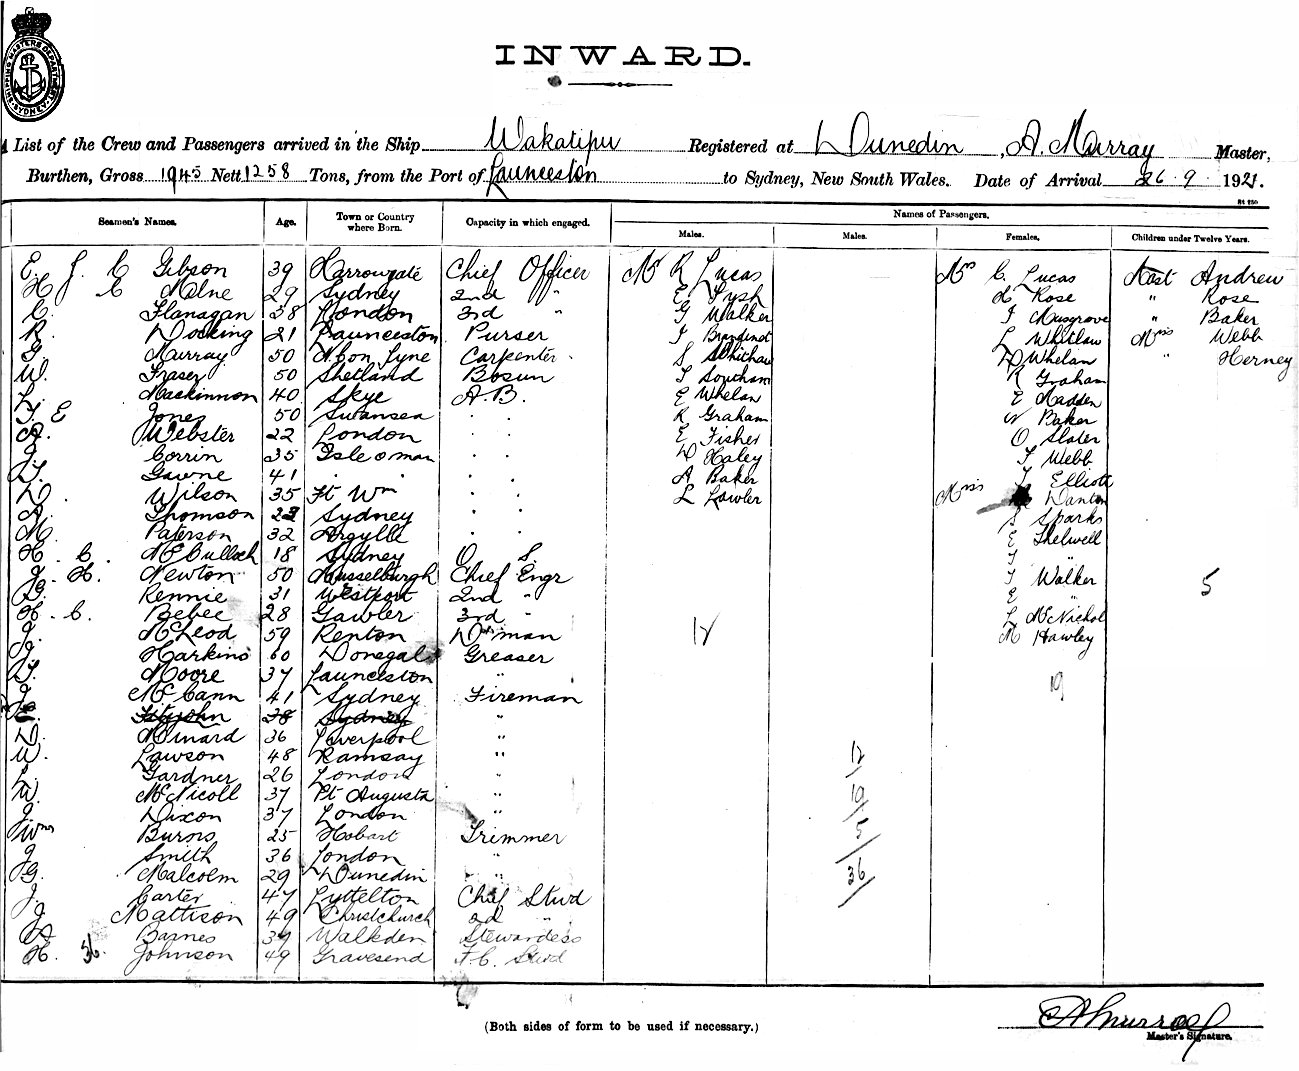 INWARD.
List of the Crew and Passengers arrived in the Ship Wakatipu Registered at Dunedin, A. Murray Master,
Burthen, Gross 1945 Nett 1258 Tons, from the Port of Launceston to Sydney, New South Wales. Date of Arrival 26.9.1921.
Seamen's Names. Age. Town or Country where Born. Capacity in which engaged. Names of Passengers.
Males. Males. Females. Children under Twelve Years.
E. J. C Gibson 39 Harrowgate Chief Officer Mr R Lucas Mrs C. Lucas Mast Andrew
H C Milne 29 Sydney 2nd " E Tysh L Rose " Rose
C. Flanagan 38 London 3rd " G Walker J Musgrove " Baker
R. Docking 21 Launceston Purser L Whitlaw Miss Webb
G. Murray 50 N. on Tyne Carpenter D Whelan " Herney
W. Fraser 50 Shetland Bosun T Southam R Graham
L. Mackinnon 40 Skye A.B. E Whelan E Madden
T E Jones 50 Swansea . . R Graham W Baker
A. Webster 22 London . . E Fisher O Slater
J. Corrin 35 Isle o man . . D Haley T Webb
Gawne 41 . . . . A Baker T Elliott
D. Wilson 35 Ft Wm . . L Lawler Miss Danton
A. Thomson 23 Sydney . . S Sparks
M. Paterson 32 Argylle . . E Thelwell
H. C. McCulloch 18 Sydney O S. T "
J. H. Newton 50 Musselburgh Chief Engr T Walker
D. Rennie 31 Westport 2nd " E " 5
H. C. Bebee 28 Gawler 3rd " L McNichol
J. McLeod 59 Renton D'man 12 M Hawley
J. Harkins 60 Donegal Greaser
D. Moore 37 Launceston " 19
J. McCann 41 Sydney Fireman
Fitzjohn 38 Sydney "
D. Minard 36 Liverpool "
W. Lawson 48 Ramsay " 12
L. Gardner 26 London "
W. McNicoll 37 Pt Augusta " 19
J. Dixon 37 London "
Wm Burns 25 Hobart Trimmer 5
J. Smith 36 London "
G. Malcolm 29 Dunedin " 36
J. Carter 47 Lyttelton Chief Stwd
J Mattison 49 Christchurch 2d "
A Barnes 39 Walkden Stewardess
H. Johnson 49 Gravesend F.C. Stwd
A Murray
Master's Signature.
(Both sides of form to be used if necessary.)